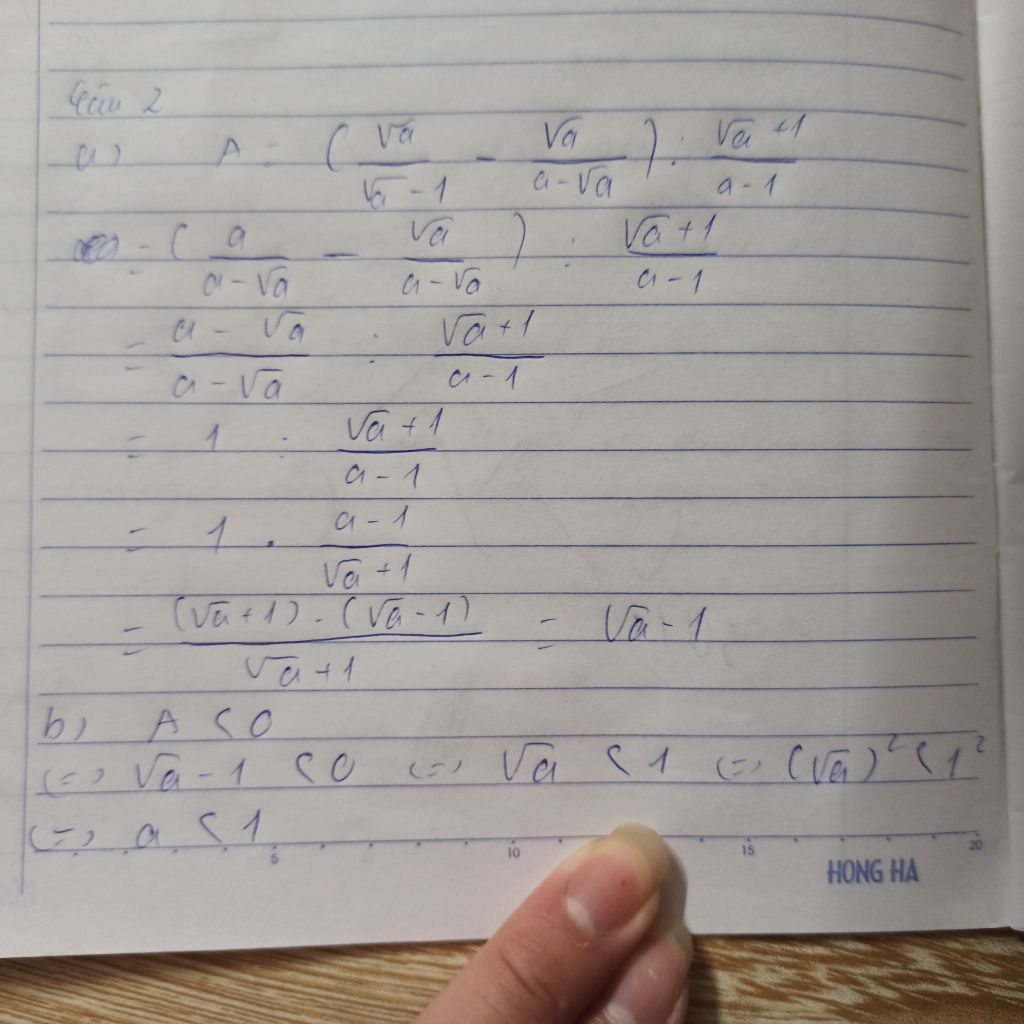 Câu 2
a) A = (√a / (√a - 1) - √a / (a - √a)) : (√a + 1) / (a - 1)
= (a / (a - √a) - √a / (a - √a)) : (√a + 1) / (a - 1)
= (a - √a) / (a - √a) : (√a + 1) / (a - 1)
= 1 : (√a + 1) / (a - 1)
= 1 . (a - 1) / (√a + 1)
= (√a + 1) . (√a - 1) / (√a + 1) = √a - 1
b) A < 0
(=) √a - 1 < 0 (=) √a < 1 (=) (√a)² < 1²
(=) a < 1
5 10 15 20
HONG HA